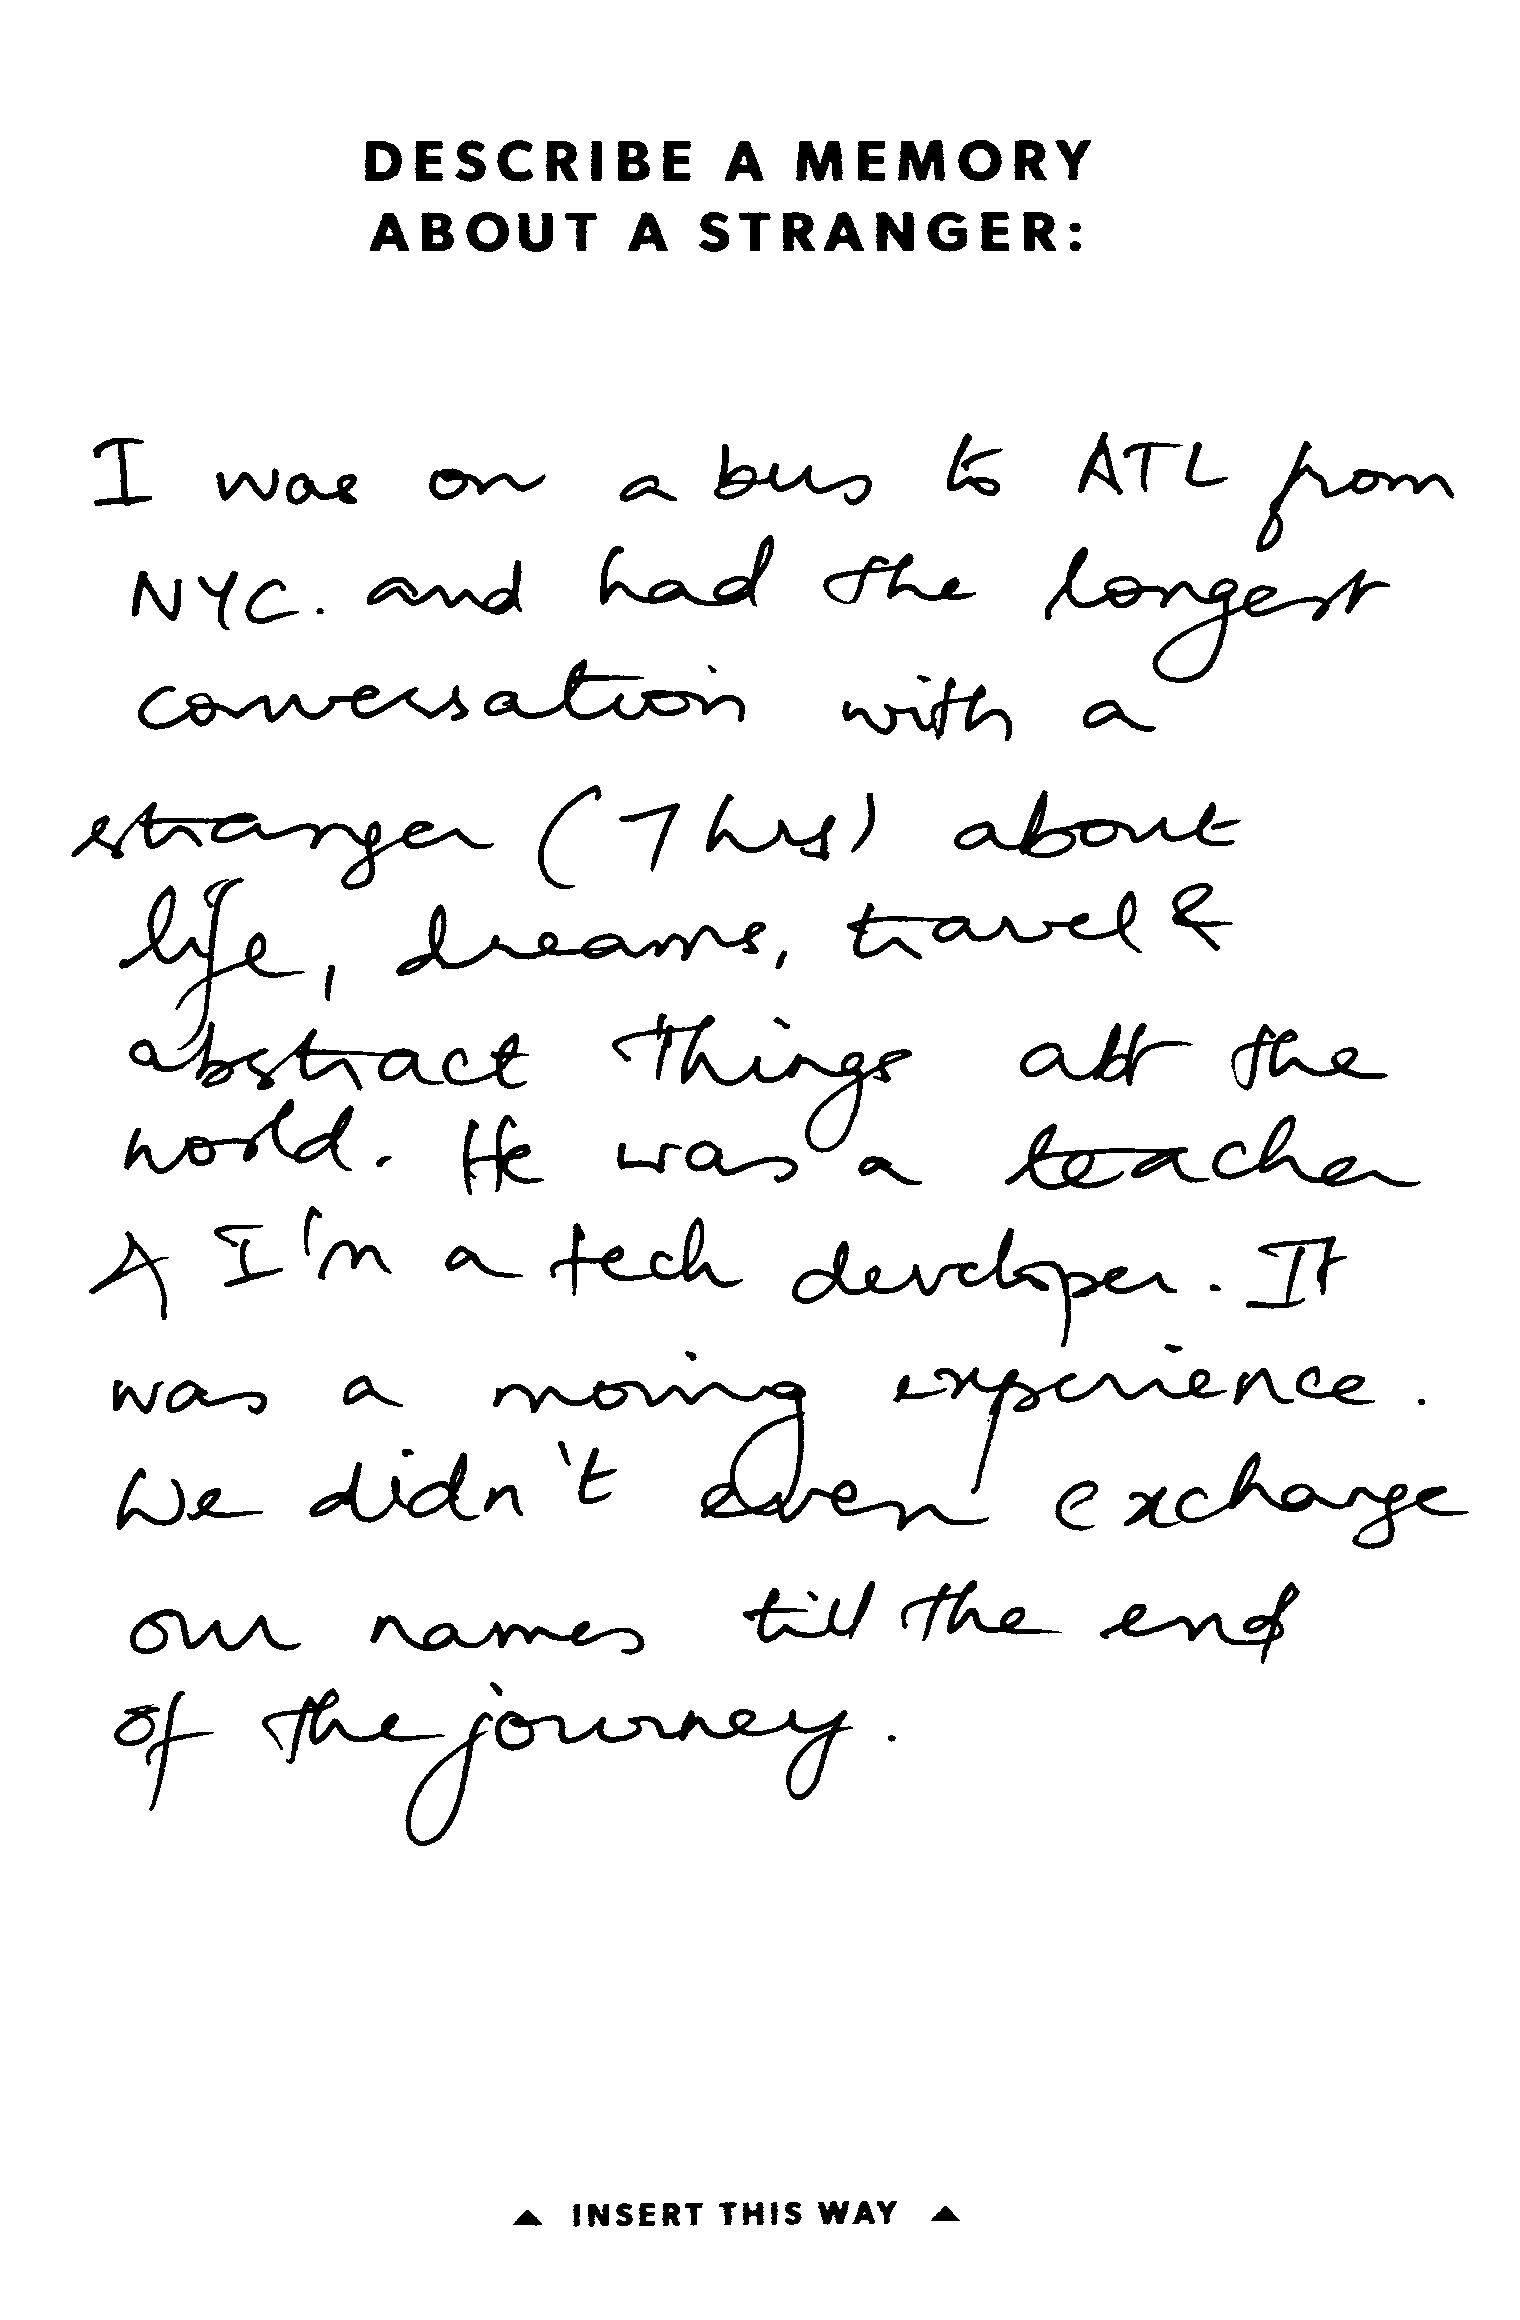 DESCRIBE A MEMORY
ABOUT A STRANGER:
I was on a bus to ATL from
NYC. and had the longest
conversation with a
stranger (7 hrs) about
life, dreams, travel &
abstract things abt the
world. He was a teacher
& I'm a tech developer. It
was a moving experience.
We didn't even exchange
our names till the end
of the journey.
▲ INSERT THIS WAY ▲